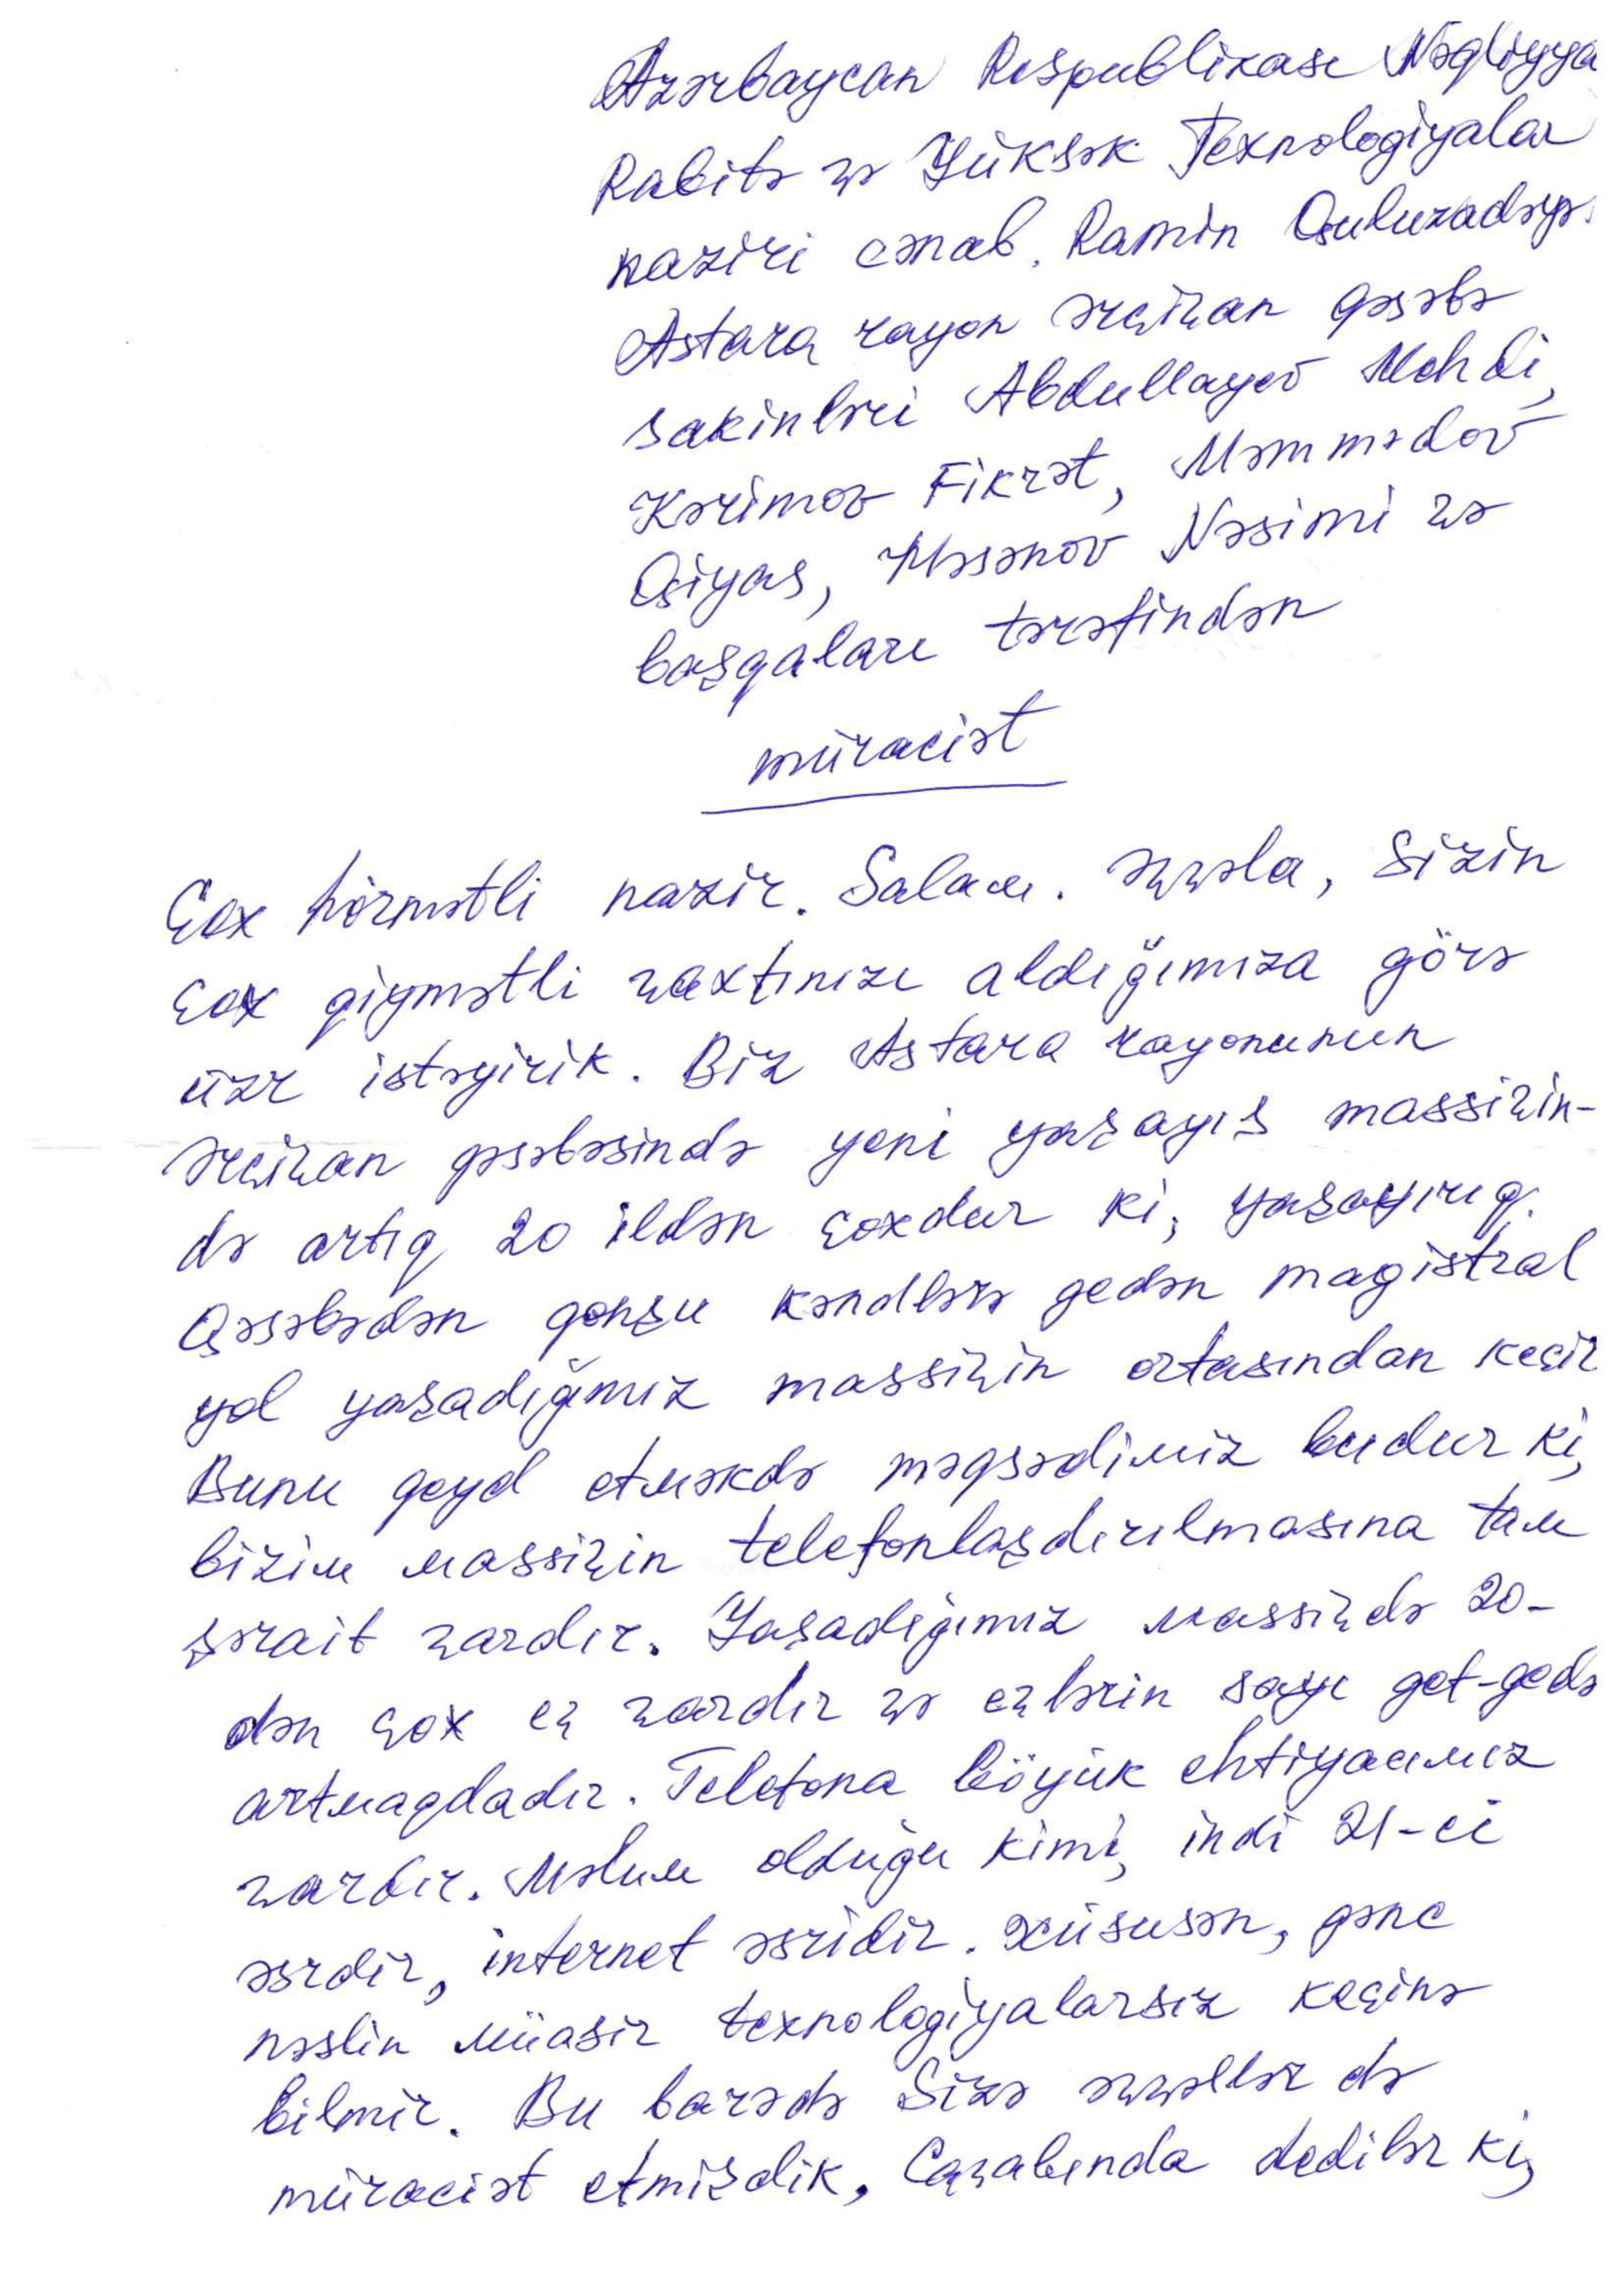 Azərbaycan Respublikası Nəqliyya
Rabitə və Yüksək Texnologiyalar
naziri cənab. Ramin Quluzadəyə.
Astara rayon Ərçivan qəsəbə
sakinləri Abdullayev Mehdi,
Kərimov Fikrət, Məmmədov
Qiyas, Həsənov Nəsimi və
başqaları tərəfindən
müraciət
Çox hörmətli nazir. Salam. Əvvəla, Sizin
çox qiymətli vaxtınızı aldığımıza görə
üzr istəyirik. Biz Astara rayonunun
Ərçivan qəsəbəsində yeni yaşayış massivin-
də artıq 20 ildən çoxdur ki, yaşayırıq.
Qəsəbədən qonşu kəndlərə gedən magistral
yol yaşadığmız massivin ortasından keçir
Bunu qeyd etməkdə məqsədimiz budur ki,
bizim massivin telefonlaşdırılmasına tam
şərait vardır. Yaşadığımız massivdə 20-
dən çox ev vardır və evlərin sayı get-gedə
artmaqdadır. Telefona böyük ehtiyacımız
vardır. Məlum olduğu kimi, indi 21-ci
əsrdir, internet əsridir. Xüsusən, gənc
nəslin müasir texnologiyalarsız keçinə
bilmir. Bu barədə Sizə əvvəllər də
müraciət etmişdik, Cavabında dedilər ki,